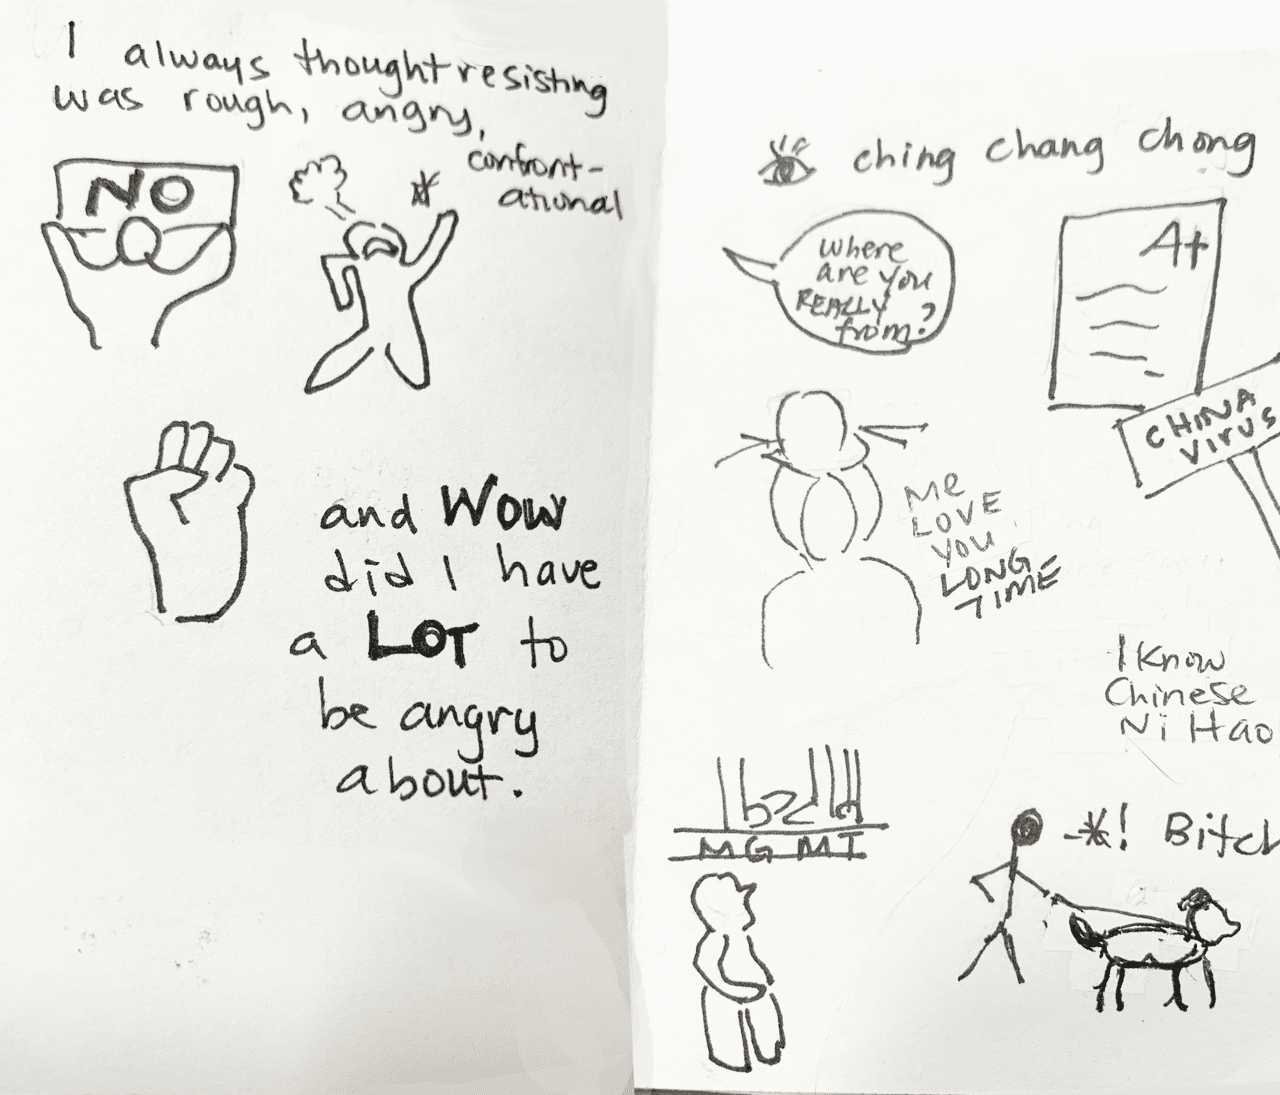 I always thought resisting
was rough, angry,
confront-
ational
NO
and WOW
did I have
a LOT to
be angry
about.
ching chang chong
Where
are you
REALLY
from?
A+
CHINA
VIRUS
Me
LOVE
YOU
LONG
TIME
I Know
Chinese
Ni Hao
MGMT
! Bitch